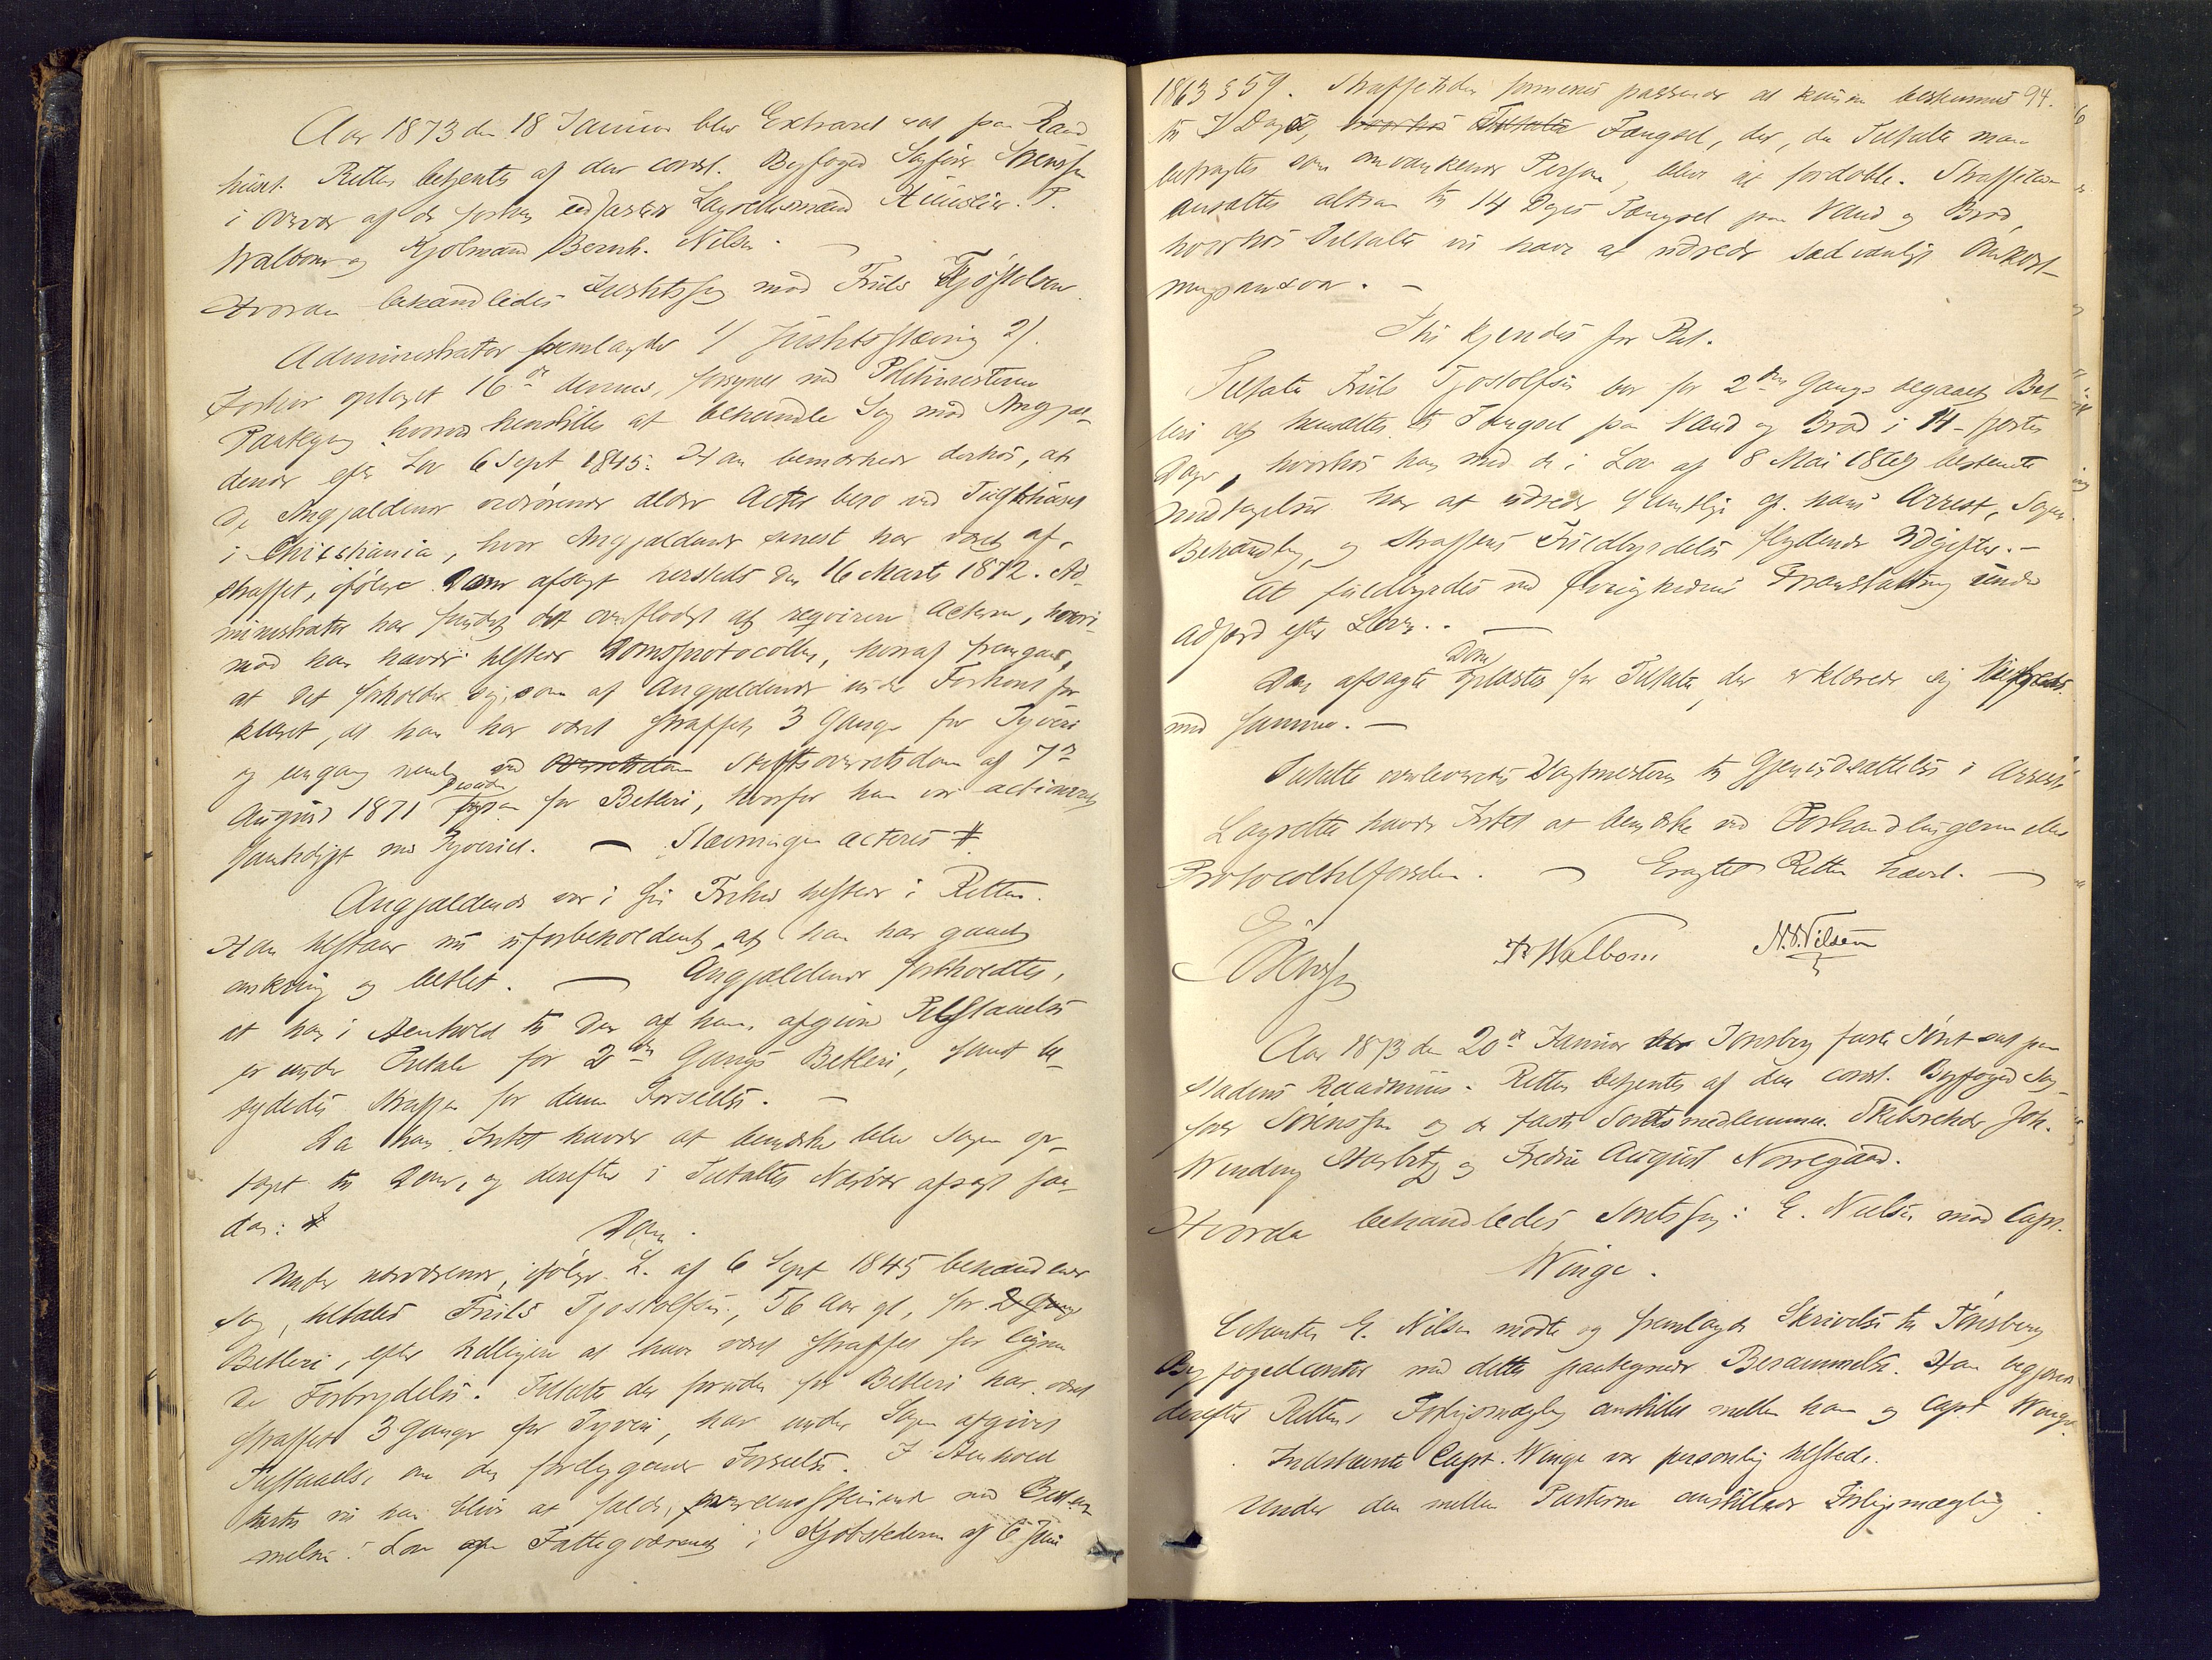 Aar 1873 den 18 Januar blev Extraret sat paa Raad
huset. Retten betjentes af den const. Byfoged Sagfører Sørenssen
i Overvær af de forhen edfæstede Lagrettesmænd P.
Walbom og Kjølmand Bernh. Nilsen.
Hvorda behandledes Justitssag mod Truls Tjøstolsen
Administrator fremlagde 1/ Justitsstævning 2/
Forhør optaget 16de dennes, forsynet med Politimesterens
Paategng hvorved henstilles at behandle Sag mod Angjæl-
dende efter Lov 6 Sept 1845. Han bemærkede derhos, at
de Angjældende vedrørende ældre Acter bero ved Tugthuset
i Christiania, hvor Angjældende senest har været af-
straffet, ifølge Dom afsagt hersteds den 16 Marts 1872. Ad-
ministrator har fundet det overflødigt at reqvirere Acterne, hvori-
mod han havde tilstede Domsprotocollen, hvoraf fremgaar,
at det forholder sig, som af Angjældende under Forhøret for
klaret, at han har været straffet 3 Gange for Tyveri
og engang nemlig ved Overretsdom Stiftsoverretsdom af 7de
August 1871 desuden for Betleri, hvorfor han var actioneret
samtidigt med Tyveriet. — Stævningen acteres #
Angjældende var i fri Tilstand tilstede i Retten.
Han tilstaar nu uforbeholdent, at han har gaaet
omkring og betlet. — Angjældende foreholdtes,
at han i Henhold til den af ham afgivne Tilstaaelse
er under Tiltale for 2den Gangs Betleri, samt be-
tydedes Straffen for denne Forseelse. —
Da han Intet havde at bemærke blev Sagen op-
taget til Dom, og derefter i Tiltaltes Nærvær afsagt saa-
dan: #
Dom.
Under nærværende, ifølge L. af 6 Sept 1845 behandlede
Sag, tiltales Truls Tjostolfsen, 56 Aar gl, for 2 Gangs
Betleri, efter tidligere at have været straffet for lignen
de Forbrydelse. Tiltalte der foruden for Betleri har været
straffet 3 Gange for Tyveri, har under Sagen afgivet
Tilstaaelse om den foreliggende Forseelse. I Henhold
hertil vil han blive at fælde, overensstemmende med Bestem
melsen i Lov om Fattigvæsenet i Kjøbstæderne af 6 Juni
1863 § 59. Straffetiden formenes passende at kunne bestemmes 94.
til 7 Dage, hvorhos Tiltalte Fængsel, der, da Tiltalte maa
betragtes som omvankende Person, bliver at fordoble. Straffetiden
ansættes altsaa til 14 Dages Fængsel paa Vand og Brød,
hvorhos Tiltalte vil have at udrede sædvanligt Omkost-
ningsansvar. —
Thi kjendes for Ret.
Tiltalte Truls Tjostolfsen bør for 2den Gangs begaaet Bet-
leri at hensættes til Fængsel paa Vand og Brød i 14 – fjorten
Dage, hvorhos han med de i Lov af 8 Mai 1869 bestemte
Undtagelser har at udrede samtlige af hans Arrest, Sagens
Behandling, og Straffens Fuldbyrdelse flydende Udgifter. —
At fuldbyrdes ved Øvrighedens Foranstaltning under
Adfærd efter Loven. —
Den afsagte Dom oplæstes for Tiltalte, der erklærede sig tilfreds
med samme. —
Tiltalte overleveredes Vagtmesteren til Gjenindsættelse i Arrest
Lagretten havde Intet at bemærke ved Forhandlingerne eller
Protocoltilførselen. — Eragtet Retten hævet. —
P. Walbom N.B.Nilsen
Aar 1873 den 20de Januar blev Tønsberg faste Søret sat paa
Stadens Raadhuus. Retten betjentes af den const. Byfoged Sag-
fører Sørenssen og de faste Søretsmedlemmer Skibsreder Joh.
og Fredrik August Norregaard.
Hvorda behandledes Søretssag: E. Nielsen mod Capt.
Winge.
Citanten E. Nilsen mødte og fremlagde Skrivelse til Tønsberg
Byfogedcontor med dettes paategnede Berammelse. Han begjærede
derefter Rettens Forligsmægling anstillet mellem ham og Capt Winge.
Indstævnte Capt. Winge var personlig tilstede.
Under den mellem Parterne anstillede Forligsmægling